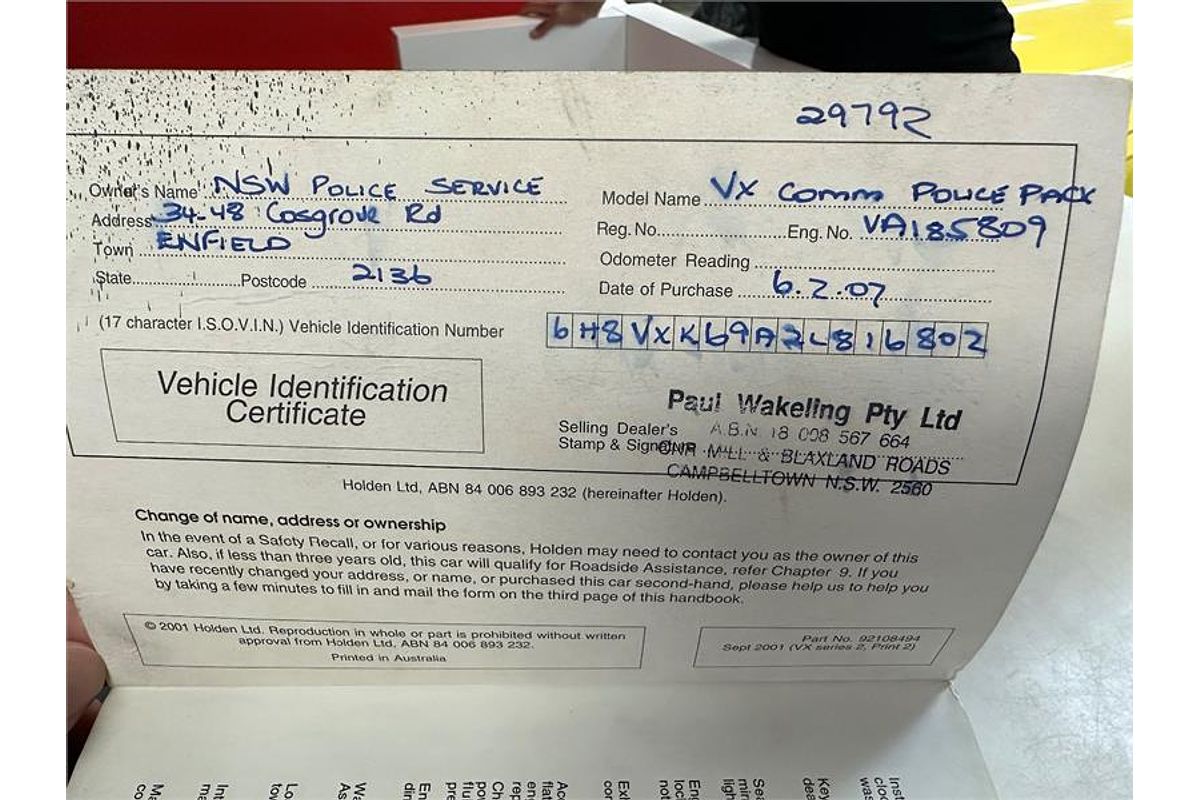 29792
Owner's Name NSW POLICE SERVICE
Address 34-48 Cosgrove Rd
Town ENFIELD
State Postcode 2136
Model Name VX Comm POLICE PACK
Reg. No. Eng. No. VA185809
Odometer Reading
Date of Purchase 6.2.07
(17 character I.S.O.V.I.N.) Vehicle Identification Number 6H8VXK69A2L816802
Vehicle Identification
Certificate
Selling Dealer's
Stamp &
Paul Wakeling Pty Ltd
A.B.N 18 008 567 664
CNR MILL & BLAXLAND ROADS
CAMPBELLTOWN N.S.W. 2560
Holden Ltd, ABN 84 006 893 232 (hereinafter Holden).
Change of name, address or ownership
In the event of a Safety Recall, or for various reasons, Holden may need to contact you as the owner of this
car. Also, if less than three years old, this car will qualify for Roadside Assistance, refer Chapter 9. If you
have recently changed your address, or name, or purchased this car second-hand, please help us to help you
by taking a few minutes to fill in and mail the form on the third page of this handbook.
© 2001 Holden Ltd. Reproduction in whole or part is prohibited without written
approval from Holden Ltd, ABN 84 006 893 232.
Printed in Australia
Part No. 92108494
Sept 2001 (VX series 2, Print 2)